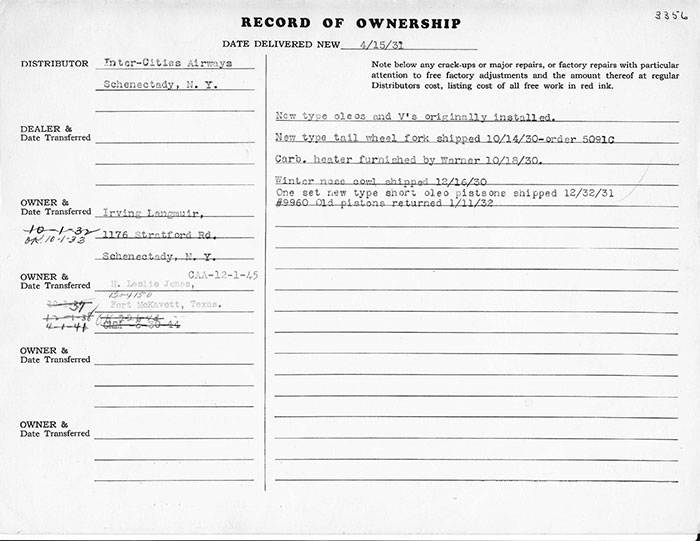 3356
RECORD OF OWNERSHIP
DATE DELIVERED NEW 4/15/31
DISTRIBUTOR Inter-Cities Airways
Schenectady, N. Y.
DEALER &
Date Transferred
OWNER &
Date Transferred Irving Langmuir,
10-1-32
OK 10-1-33 1176 Stratford Rd.
Schenectady, N. Y.
CAA-12-1-45
OWNER &
Date Transferred H. Leslie Jones,
Fort McKavett, Texas.
4-1-41
OWNER &
Date Transferred
OWNER &
Date Transferred
Note below any crack-ups or major repairs, or factory repairs with particular
attention to free factory adjustments and the amount thereof at regular
Distributors cost, listing cost of all free work in red ink.
New type oleos and V's originally installed.
New type tail wheel fork shipped 10/14/30-order 5091C
Carb. heater furnished by Warner 10/18/30.
Winter nose cowl shipped 12/16/30
One set new type short oleo pistsons shipped 12/32/31
#9960 Old pistons returned 1/11/32